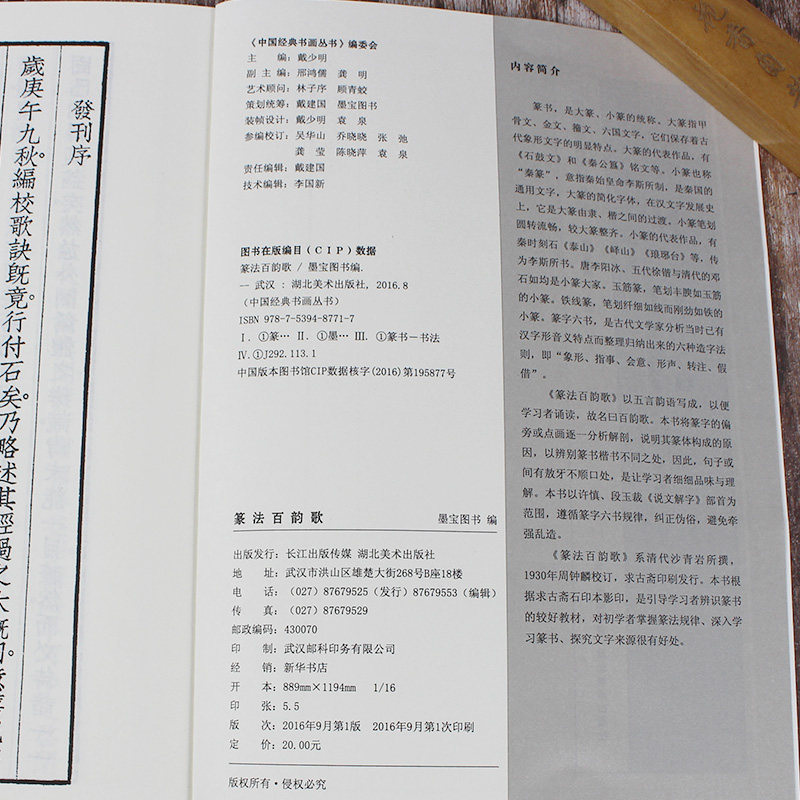 發刊序
歲庚午九秋。編校歌訣既竟。行付石矣。乃略述其經過之大概。
《中国经典书画丛书》编委会
主 编：戴少明
副 主 编：邢鸿儒 龚 明
艺术顾问：林子序 顾青蛟
策划统筹：戴建国 墨宝图书
装帧设计：戴少明 袁 泉
参编校订：吴华山 乔晓晓 张 弛
龚 莹 陈晓萍 袁 泉
责任编辑：戴建国
技术编辑：李国新
图书在版编目（CIP）数据
篆法百韵歌 / 墨宝图书编.
-- 武汉 : 湖北美术出版社, 2016.8
（中国经典书画丛书）
ISBN 978-7-5394-8771-7
Ⅰ. ①篆… Ⅱ. ①墨… Ⅲ. ①篆书－书法
Ⅳ. ①J292.113.1
中国版本图书馆CIP数据核字(2016)第195877号
篆法百韵歌 墨宝图书 编
出版发行：长江出版传媒 湖北美术出版社
地 址：武汉市洪山区雄楚大街268号B座18楼
电 话：（027）87679525（发行）87679553（编辑）
传 真：（027）87679529
邮政编码：430070
印 制：武汉邮科印务有限公司
经 销：新华书店
开 本：889mm×1194mm 1/16
印 张：5.5
版 次：2016年9月第1版 2016年9月第1次印刷
定 价：20.00元
版权所有·侵权必究
内容简介
篆书，是大篆、小篆的统称。大篆指甲
骨文、金文、籀文、六国文字，它们保存着古
代象形文字的明显特点。大篆的代表作品，有
《石鼓文》和《秦公簋》铭文等。小篆也称
“秦篆”，意指秦始皇命李斯所制，是秦国的
通用文字，大篆的简化字体，在汉文字发展史
上，它是大篆由隶、楷之间的过渡。小篆笔划
圆转流畅，较大篆整齐。小篆的代表作品，有
秦时刻石《泰山》《峄山》《琅琊台》等，传
为李斯所书。唐李阳冰、五代徐锴与清代的邓
石如均是小篆大家。玉筋篆，笔划丰腴如玉筋
的小篆。铁线篆，笔划纤细如线而刚劲如铁的
小篆。篆字六书，是古代文学家分析当时已有
汉字形音义特点而整理归纳出来的六种造字法
则，即“象形、指事、会意、形声、转注、假
借”。
《篆法百韵歌》以五言韵语写成，以便
学习者诵读，故名曰百韵歌。本书将篆字的偏
旁或点画逐一分析解剖，说明其篆体构成的原
因，以辨别篆书楷书不同之处，因此，句子或
间有敖牙不顺口处，是让学习者细细品味与理
解。本书以许慎、段玉裁《说文解字》部首为
范围，遵循篆字六书规律，纠正伪俗，避免牵
强乱造。
《篆法百韵歌》系清代沙青岩所撰，
1930年周钟麟校订，求古斋印刷发行。本书根
据求古斋石印本影印，是引导学习者辨识篆书
的较好教材，对初学者掌握篆法规律、深入学
习篆书、探究文字来源很有好处。